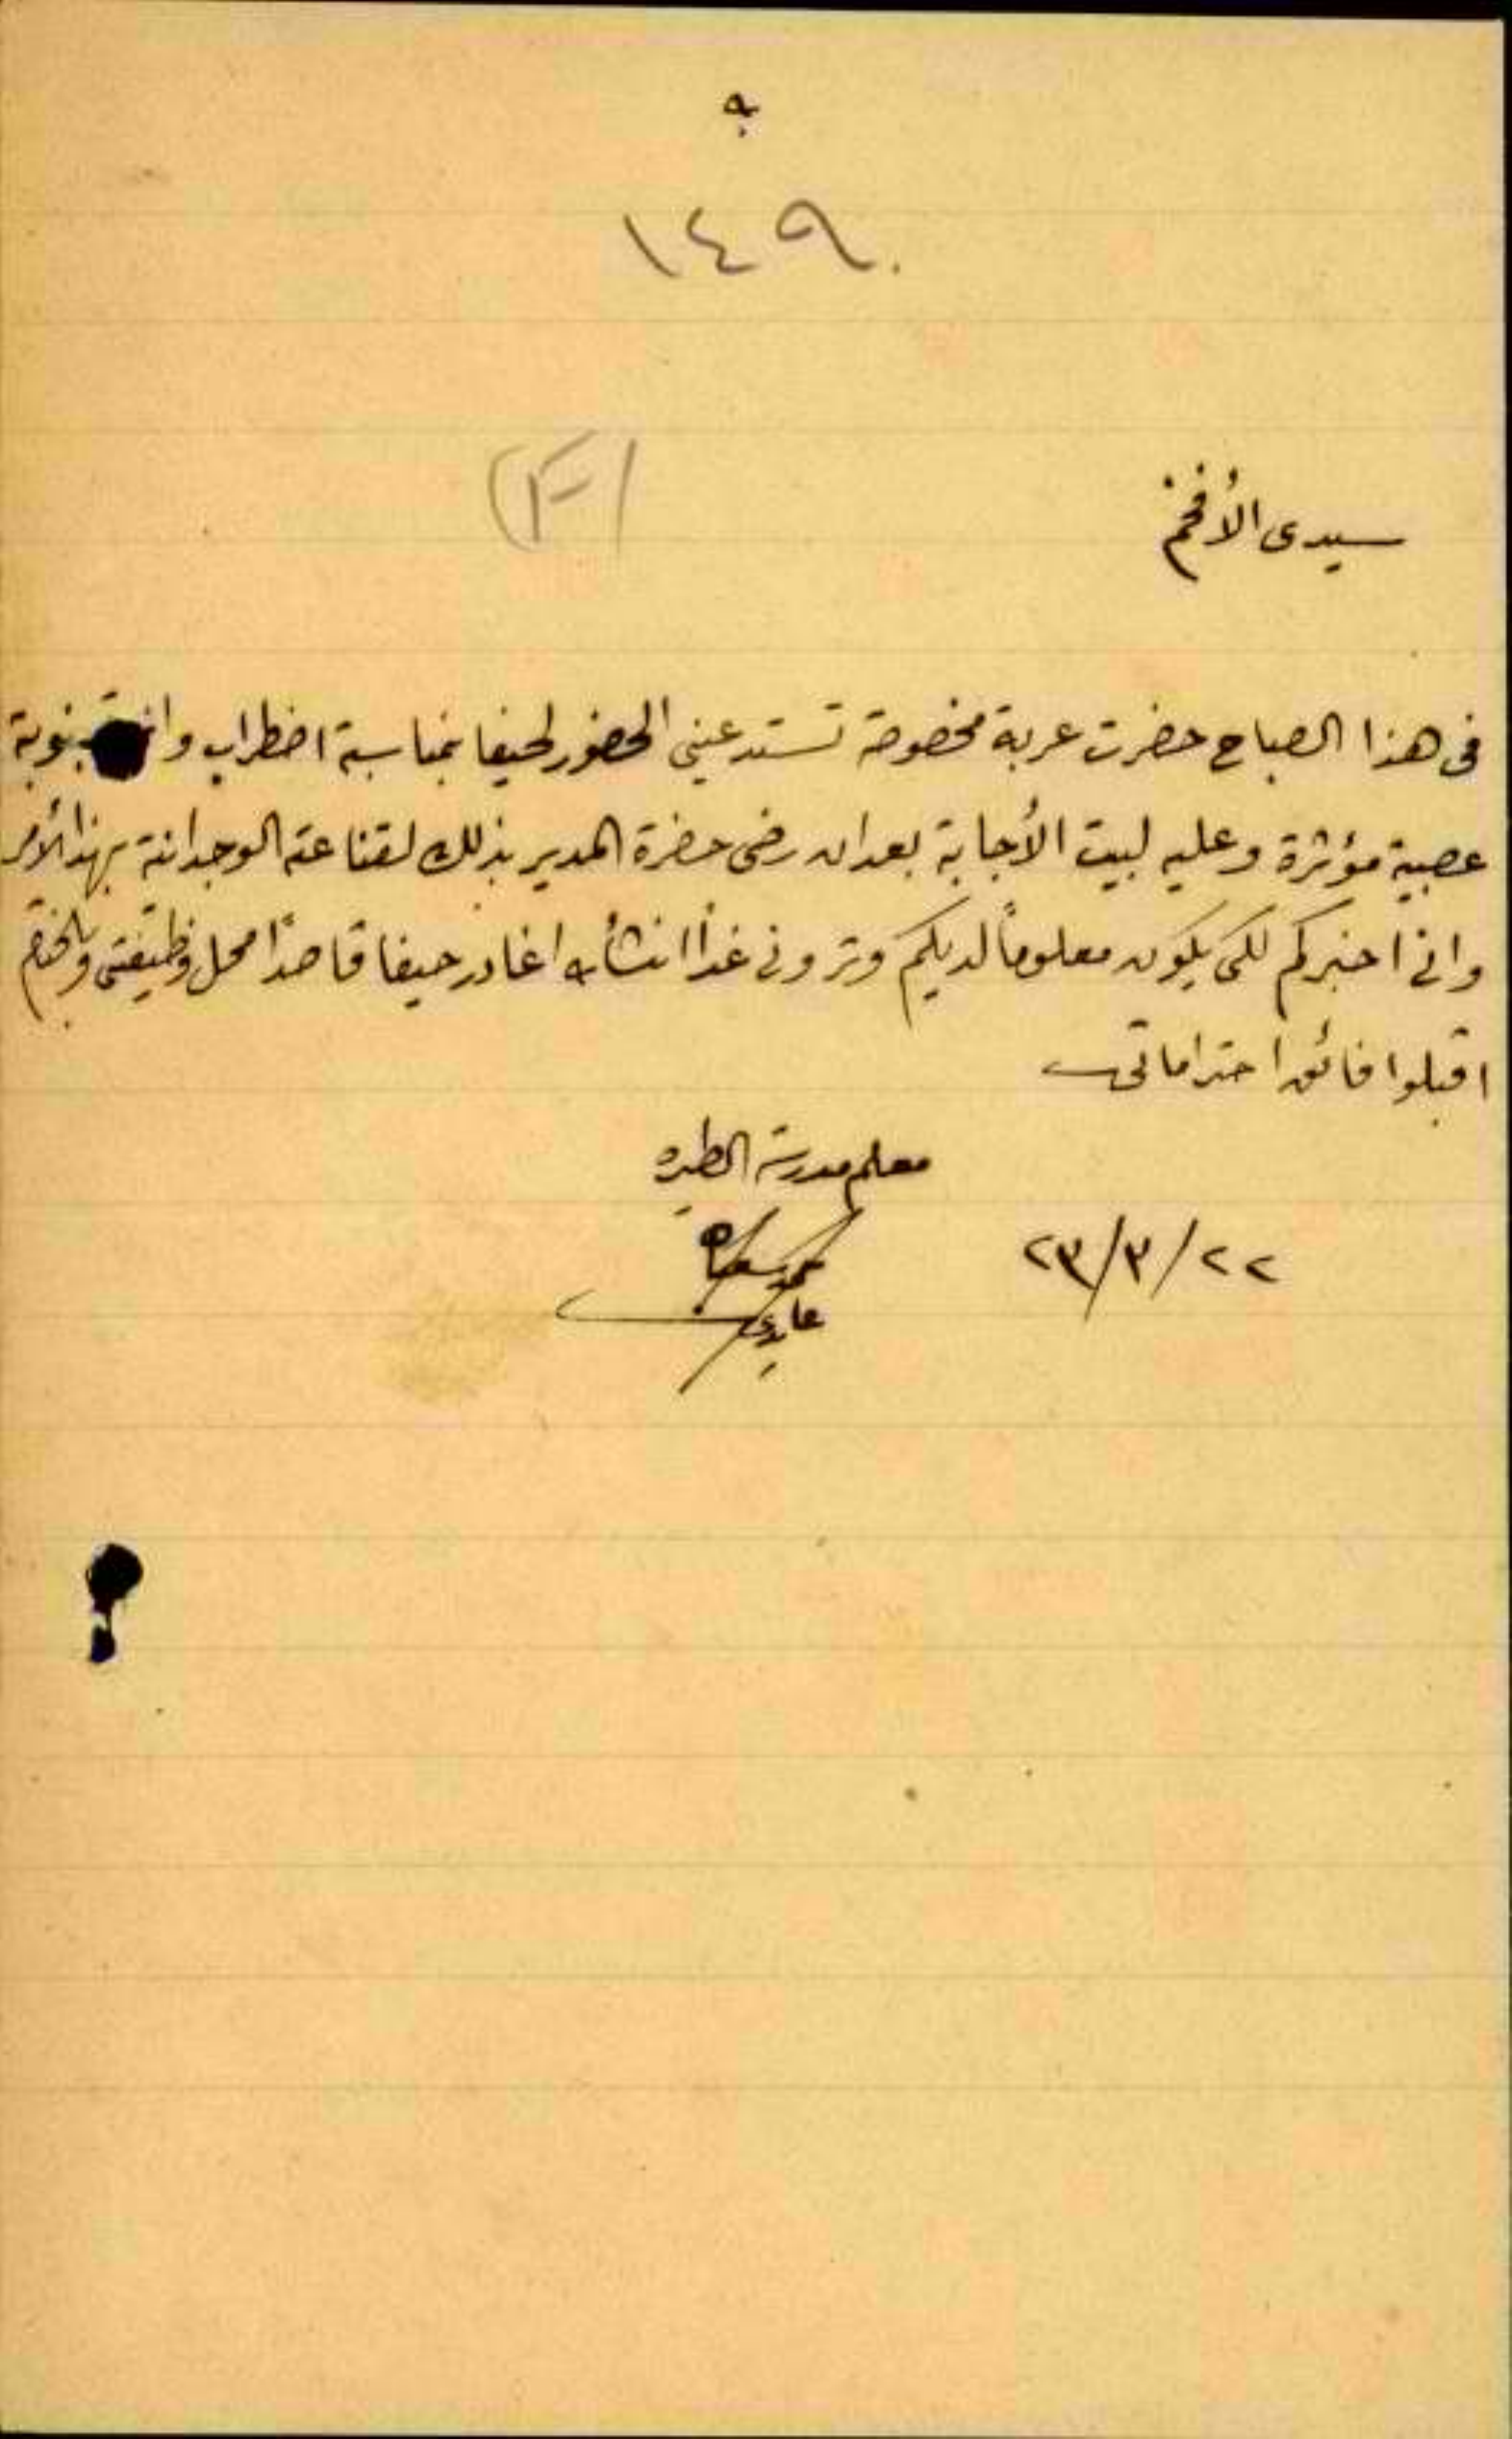 ١٤٩
سيدى الأفخم
فى هذا الصباح حضرت عربة مخصوصة تستدعينى الحضور لحيفا بمناسبة اضطراب بنوبة
عصبية مؤثرة وعليه لبيت الأجابة بعد ان رضى حضرة المدير بذلك لقناعته الوجدانية بهذا الأمر
وانى اخبركم لكى يكون معلوماً لديكم وترونى غداً انشأ الله اغادر حيفا قاصداً محل وظيفتى وبالختام
اقبلوا فائق احتراماتى
معلم مدرسة الطيره
٢٣/٣/٢٢
محمد
عابدى